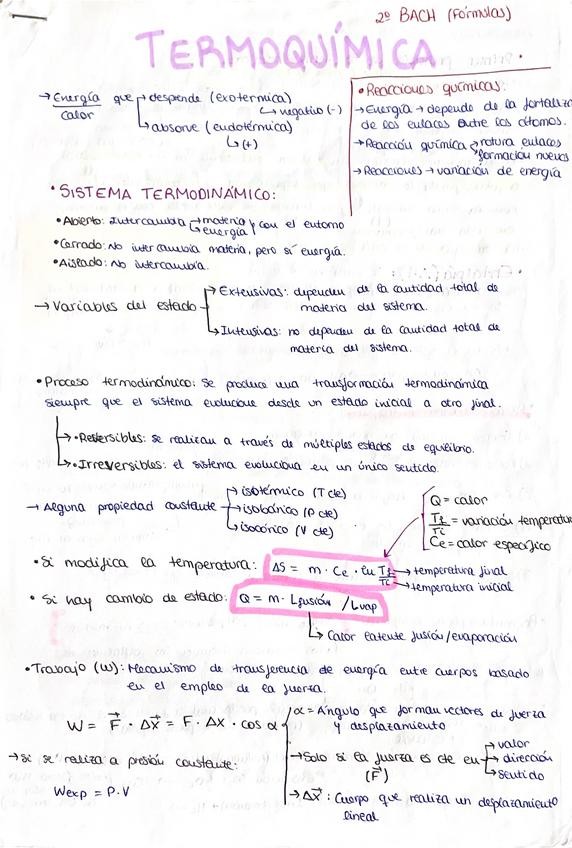 2º BACH (Fórmulas)
TERMOQUÍMICA
→ Energía que → desprende (exotérmica)
calor
↳ negativo (-)
↳ absorve (endotérmica)
↳ (+)
• Reacciones químicas:
→ Energía → depende de la fortaleza
de los enlaces entre los átomos.
→ Reacción química → rotura enlaces
formación nuevos
→ Reacciones → variación de energía
• SISTEMA TERMODINÁMICO:
• Abierto: intercambia → materia y con el entorno
energía
• Cerrado: No intercambia materia, pero sí energía.
• Aislado: No intercambia.
→ Variables del estado → Extensivas: dependen de la cantidad total de
materia del sistema.
↳ Intensivas: no dependen de la cantidad total de
materia del sistema.
• Proceso termodinámico: se produce una transformación termodinámica
siempre que el sistema evolucione desde un estado inicial a otro final.
→ • Reversibles: se realizan a través de múltiples estados de equilibrio.
→ • Irreversibles: el sistema evoluciona en un único sentido.
→ Alguna propiedad constante → isotérmico (T cte)
→ isobárico (P cte)
↳ isocórico (V cte)
Q = calor
Tf/Tc = variación temperatura
Ce = calor específico
• Si modifica la temperatura: ΔS = m · Ce · ln Tf/Tc → temperatura final
→ temperatura inicial
• Si hay cambio de estado: Q = m · Lfusión / Lvap
↳ Calor latente fusión/evaporación
• Trabajo (w): Mecanismo de transferencia de energía entre cuerpos basado
en el empleo de la fuerza.
W = F⃗ · Δx⃗ = F · Δx · cos α
α = Ángulo que forman vectores de fuerza
y desplazamiento
→ Solo si la fuerza es cte en → valor
(F⃗)
→ dirección
→ sentido
→ Δx⃗: Cuerpo que realiza un desplazamiento
lineal
→ Si se realiza a presión constante:
Wexp = P · V